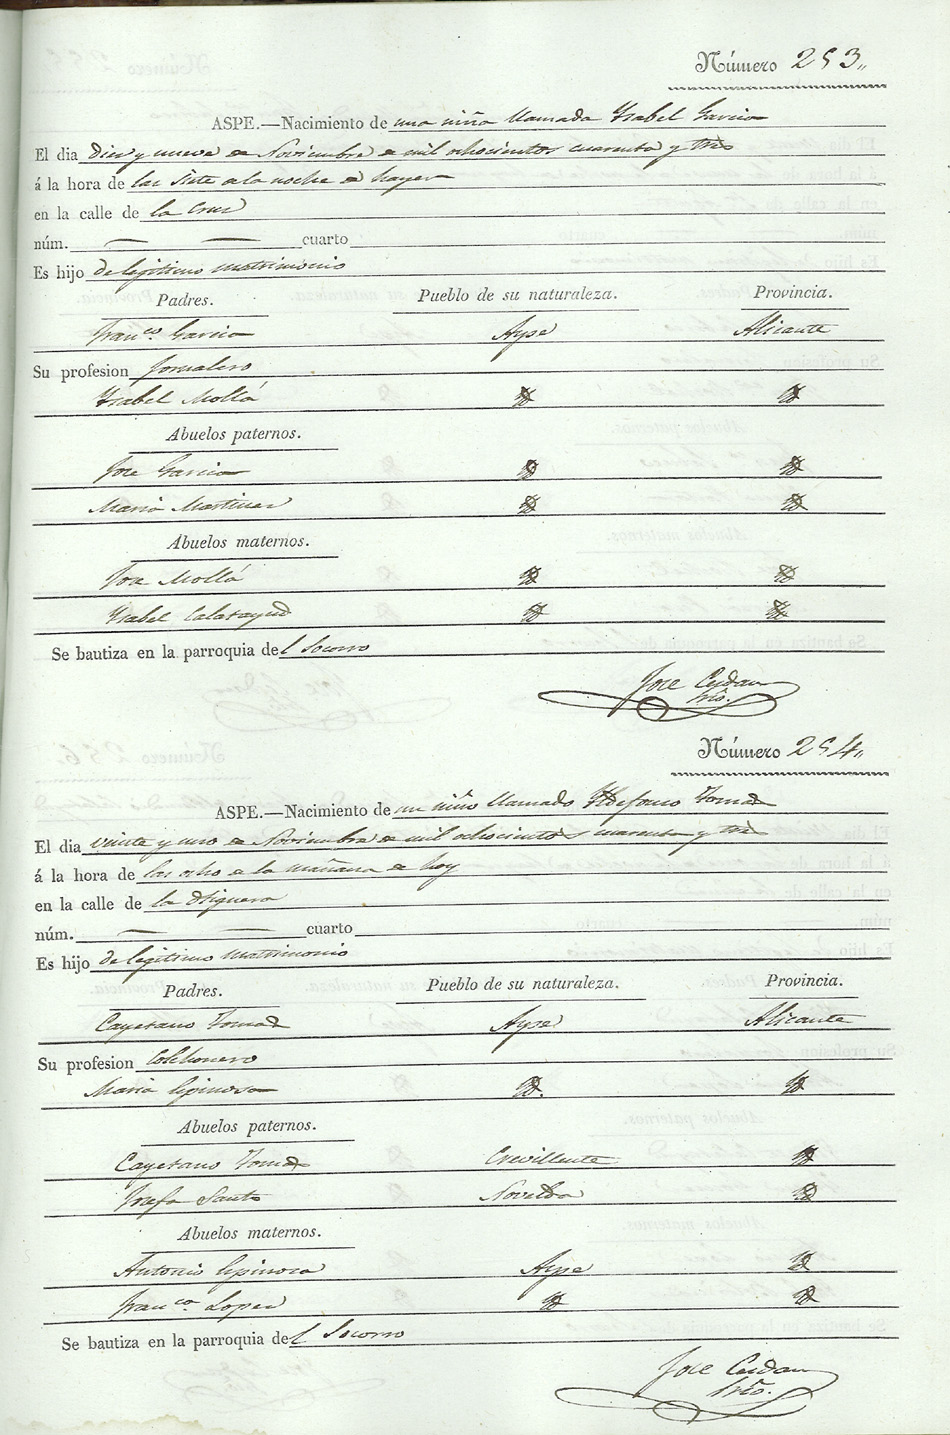 Número 253,,
ASPE.—Nacimiento de una niña llamada Ysabel Garcia
El dia diez y nueve de Noviembre de mil ochocientos cuarenta y tres
á la hora de las siete de la noche de hayer
en la calle de la Cruz
núm. — — cuarto
Es hijo de legitimo matrimonio
Padres. Pueblo de su naturaleza. Provincia.
Franco. Garcia Aspe Alicante
Su profesion Jornalero
Ysabel Mollá Yd Yd
Abuelos paternos.
Jose Garcia Yd Yd
Maria Martinez Yd Yd
Abuelos maternos.
Jose Mollá Yd Yd
Ysabel Calatayud Yd Yd
Se bautiza en la parroquia del Socorro
Jose Cerdan
Srio.
Número 254,,
ASPE.—Nacimiento de un niño llamado Yldefonso Tomas
El dia veinte y uno de Noviembre de mil ochocientos cuarenta y tres
á la hora de las ocho de la mañana de hoy
en la calle de la
núm. — — cuarto
Es hijo de legitimo matrimonio
Padres. Pueblo de su naturaleza. Provincia.
Cayetano Tomas Aspe Alicante
Su profesion Colchonero
Maria Espinosa Yd. Yd
Abuelos paternos.
Cayetano Tomas Crevillente Yd
Josefa Santo Novelda Yd
Abuelos maternos.
Antonio Espinosa Aspe Yd
Franca Lopez Yd Yd
Se bautiza en la parroquia del Socorro
Jose Cerdan
Srio.